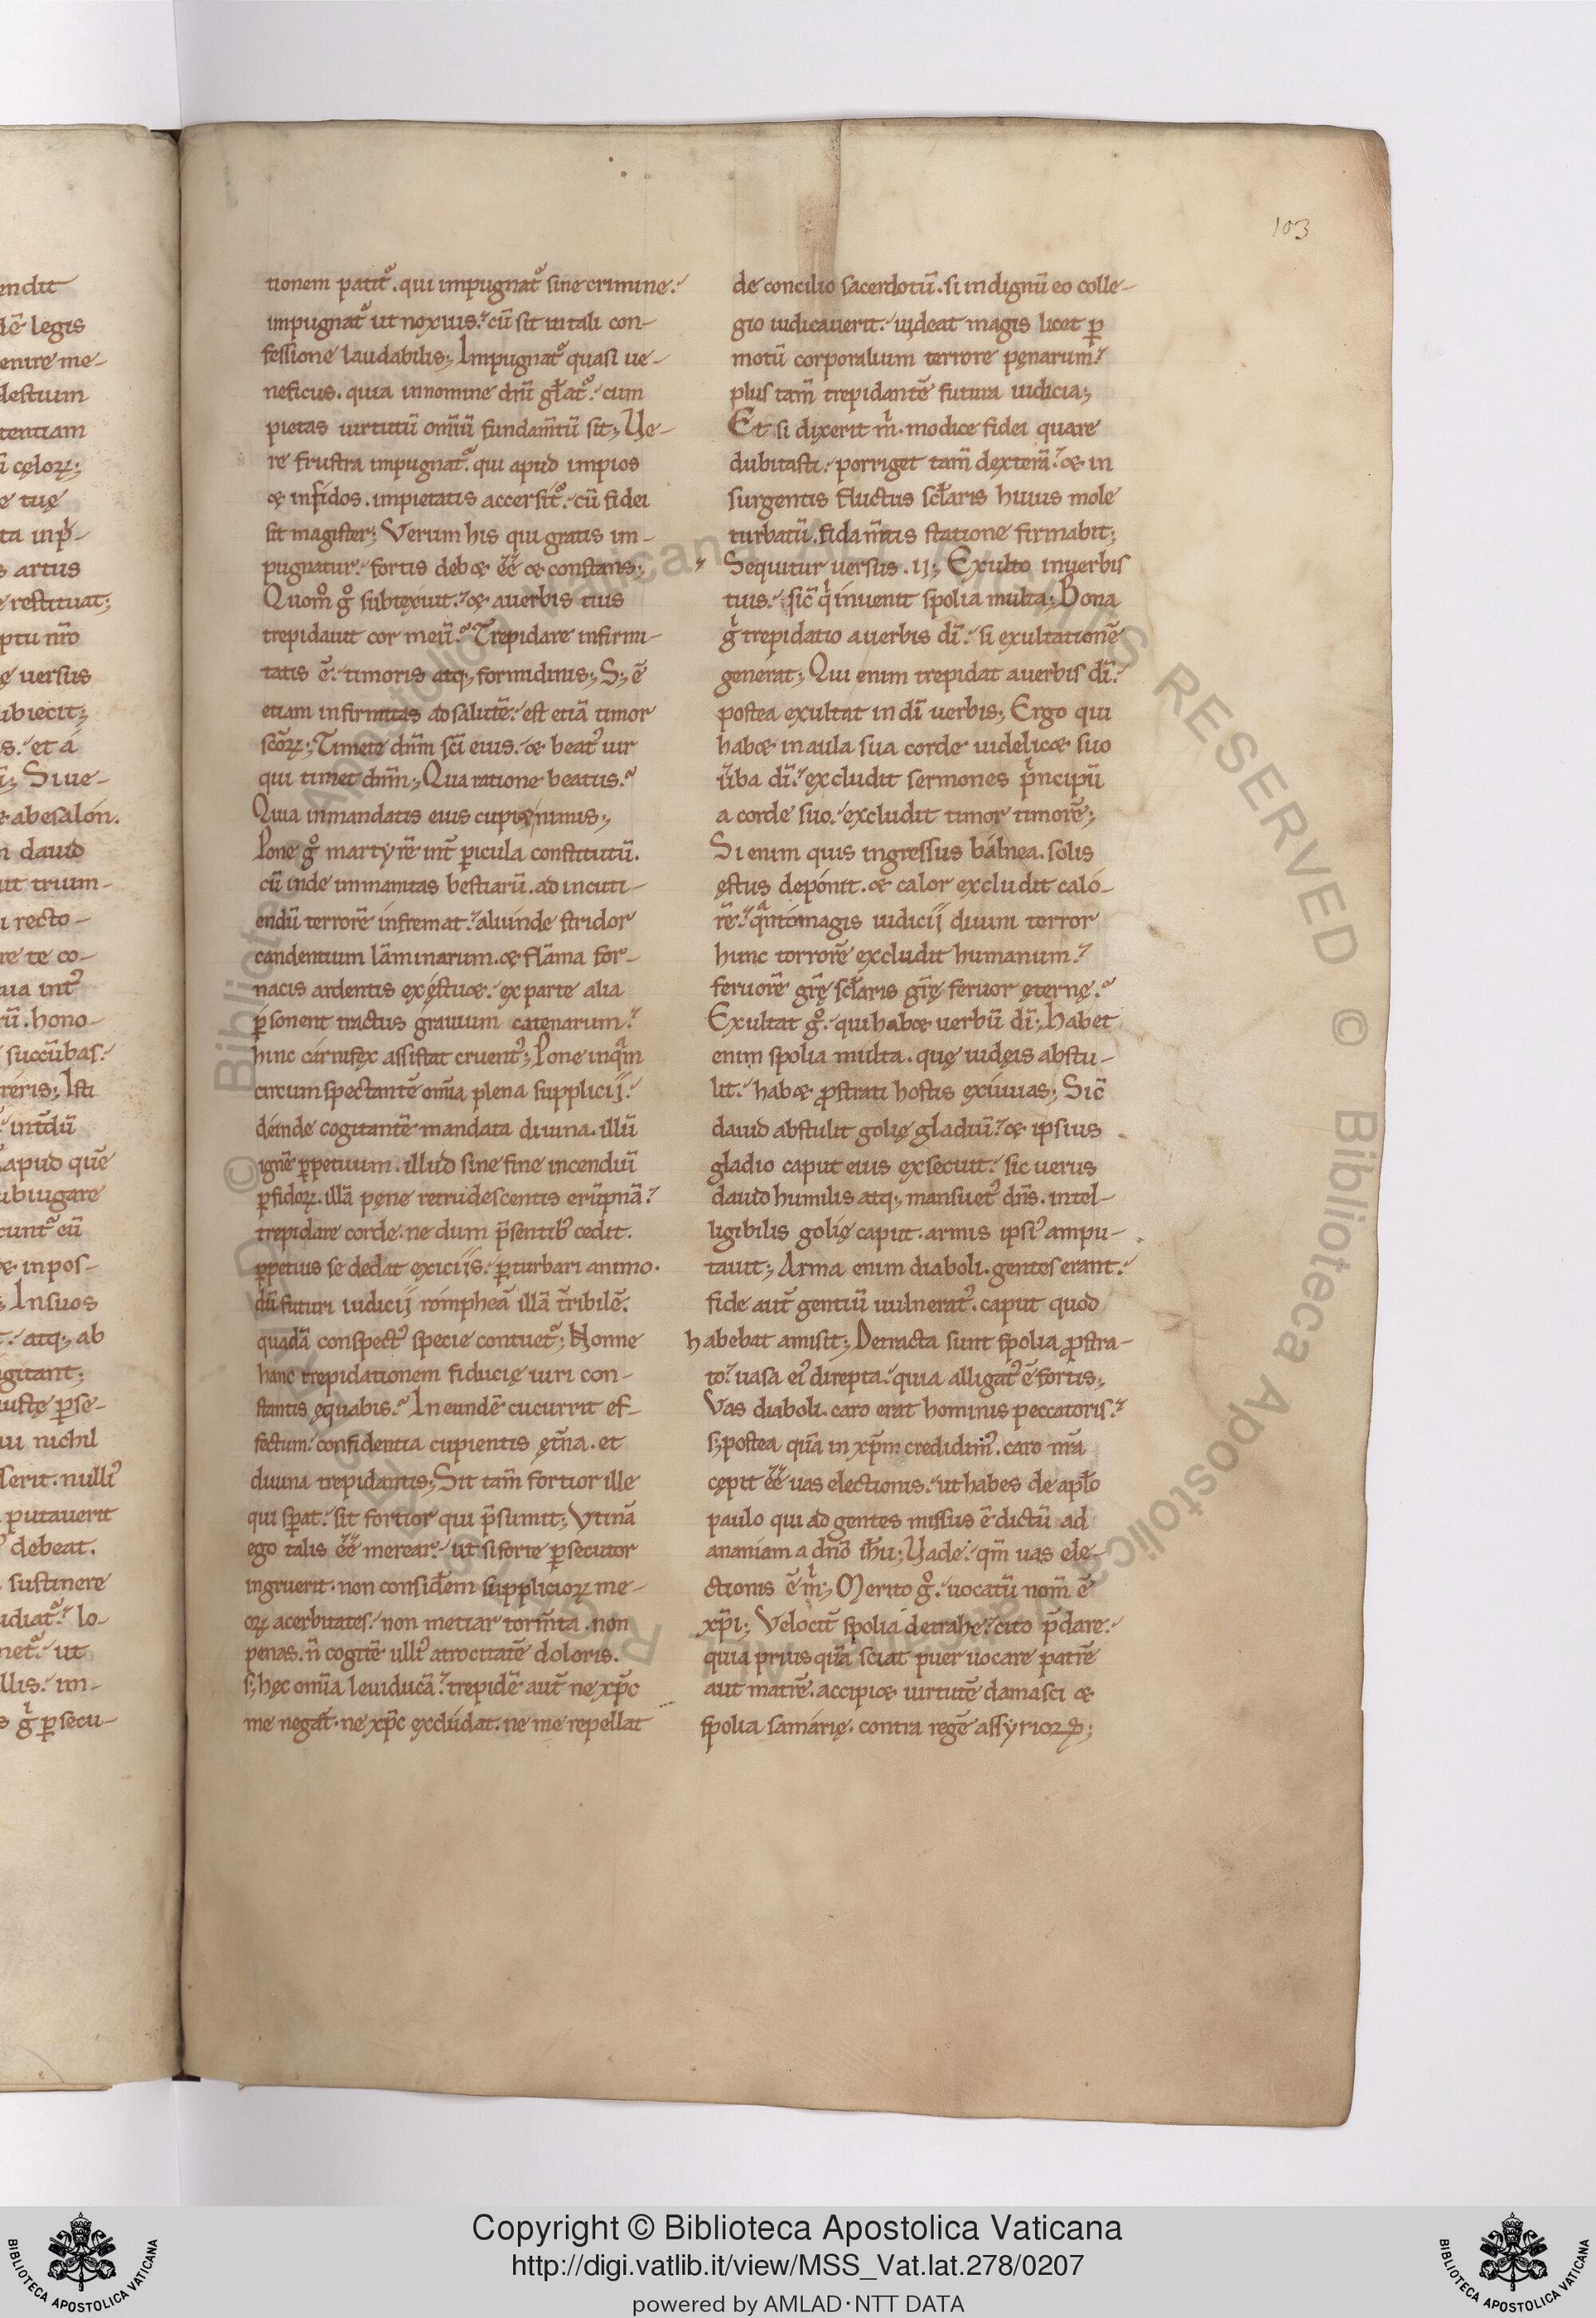 103
tionem patit᷒. qui impugnat᷒ sine crimine.
impugnat᷒ ut noxius. cū sit in tali con-
fessione laudabilis; Impugnat᷒ quasi ue-
neficus. quia innomine dnī gł̄at᷒. cum
pietas uirtutū om̄iū fundam̄tū sit; Ue-
re frustra impugnat᷒. qui apud impios
& infidos. impietatis accersit᷒. cū fidei
sit magister; Verum his qui gratis im-
pugnatur. fortis deb& ēē & constans;
Quom̊ g̊ subtexuit. & auerbis tuis
trepidauit cor meū. Trepidare infirmi-
tatis ē. timoris atq; formidinis; S; ē
etiam infirmitas ad salutē. est etiā timor
scōꝝ; Timete dnm̄ scī eius. & beat᷒ uir
qui timet dnm̄; Qua ratione beatus.
Quia inmandatis eius cupi& nimis;
Pone g̊ martyrē int̄ ꝑicula constitutū.
cū inde immanitas bestiarū. ad incuti-
endū terrorē infremat. aliunde stridor
candentium lāminarum. & flāma for-
nacis ardentis exęstu&. ex parte alia
ꝑsonent tractus grauium catenarum.
hinc carnifex assistat cruent᷒; Pone inqͣm
circumspectantē om̄ia plena supplicij.
deinde cogitantē mandata diuina. illū
ignē ꝑpetuum. illud sine fine incendiū
ꝑfidoꝝ. illā pęne recrudescentis erūpnā.
trepidare corde. ne dum p̄sentib᷒ cedit.
ꝑpetuis se dedat exiciis. ꝑturbari animo.
dū futuri iudicij rompheā illā t̄ribilē.
quadā conspect᷒ specie contuet᷒; Nonne
hanc trepidationem fiducię uiri con-
stantis ęquabis. In eundē cucurrit ef-
fectum. confidentia cupientis ęt̄na. et
diuina trepidantis; Sit tam̄ fortior ille
qui sꝑat. sit fortior qui p̄sumit; Vtinā
ego talis ēē merear. ut si forte ꝑsecutor
ingruerit. non considerem supplicioꝝ me-
oꝝ acerbitates. non metiar torm̄ta. non
penas. n̄ cogitē ulli᷒ atrocitatē doloris.
s; hęc om̄ia leuiducā. trepidē aut̄ ne xp̄c
me neget. ne xp̄c excludat. ne me repellat
de concilio sacerdotū. si indignū eo colle-
gio iudicauerit. uideat magis licet ꝑ
motū corporalium terrore pęnarum.
plus tam̄ trepidantē futura iudicia;
Et si dixerit m̄. modice fidei quare
dubitasti. porriget tam̄ dexterā. & in
surgentis fluctus scł̄aris huius mole
turbatū. fida m̄tis statione firmabit;
Sequitur uersus .ij; Exulto inuerbis
tuis. sic̄ qͥ inuenit spolia multa; Bona
gͥ trepidatio auerbis dī. si exultationē
generat; Qui enim trepidat auerbis dī.
postea exultat in dī uerbis; Ergo qui
hab& inaula sua corde uidelic& suo
ūba dī. excludit sermones pͥncipū
a corde suo. excludit timor timorē;
Si enim quis ingressus balnea. solis
ęstus deponit. & calor excludit calo-
rē. qͣntomagis iudicij diuini terror
hunc torrorē excludit humanum.
feruorē gr̄ę scł̄aris gr̄ę feruor ęternę.
Exultat g̊. qui hab& uerbū dī; habet
enim spolia multa. quę iudęis abstu-
lit. hab& ꝓstrati hostis exuuias; Sic̄
dauid abstulit golię gladiū. & ipsius
gladio caput eius exsecuit. sic uerus
dauid humilis atq; mansuet᷒ dn̄s. intel-
ligibilis golię caput. armis ipsi᷒ ampu-
tauit; Arma enim diaboli. gentes erant.
fide aut̄ gentiū uulnerat᷒. caput quod
habebat amisit; Detracta sunt spolia ꝓstra-
to. uasa ei᷒ direpta. quia alligat᷒ ē fortis;
Vas diaboli. caro erat hominis peccatoris.
s; postea quā in xp̄m credidim᷒. caro nr̄a
cępit ēē uas electionis. ut habes de apł̄o
paulo qui ad gentes missus ē dictū ad
ananiam a dnō ih̄u; Uade. qm̄ uas ele-
ctionis ē mͥ; Merito g̊. uocatū nom̄ ē
xp̄i; Velocit̄ spolia detrahe. cito p̄dare.
quia prius quā sciat puer uocare patrē
aut matrē. accipi& uirtutē damasci &
spolia samarię. contra regē assyrioꝝ;
Copyright © Biblioteca Apostolica Vaticana
http://digi.vatlib.it/view/MSS_Vat.lat.278/0207
powered by AMLAD·NTT DATA